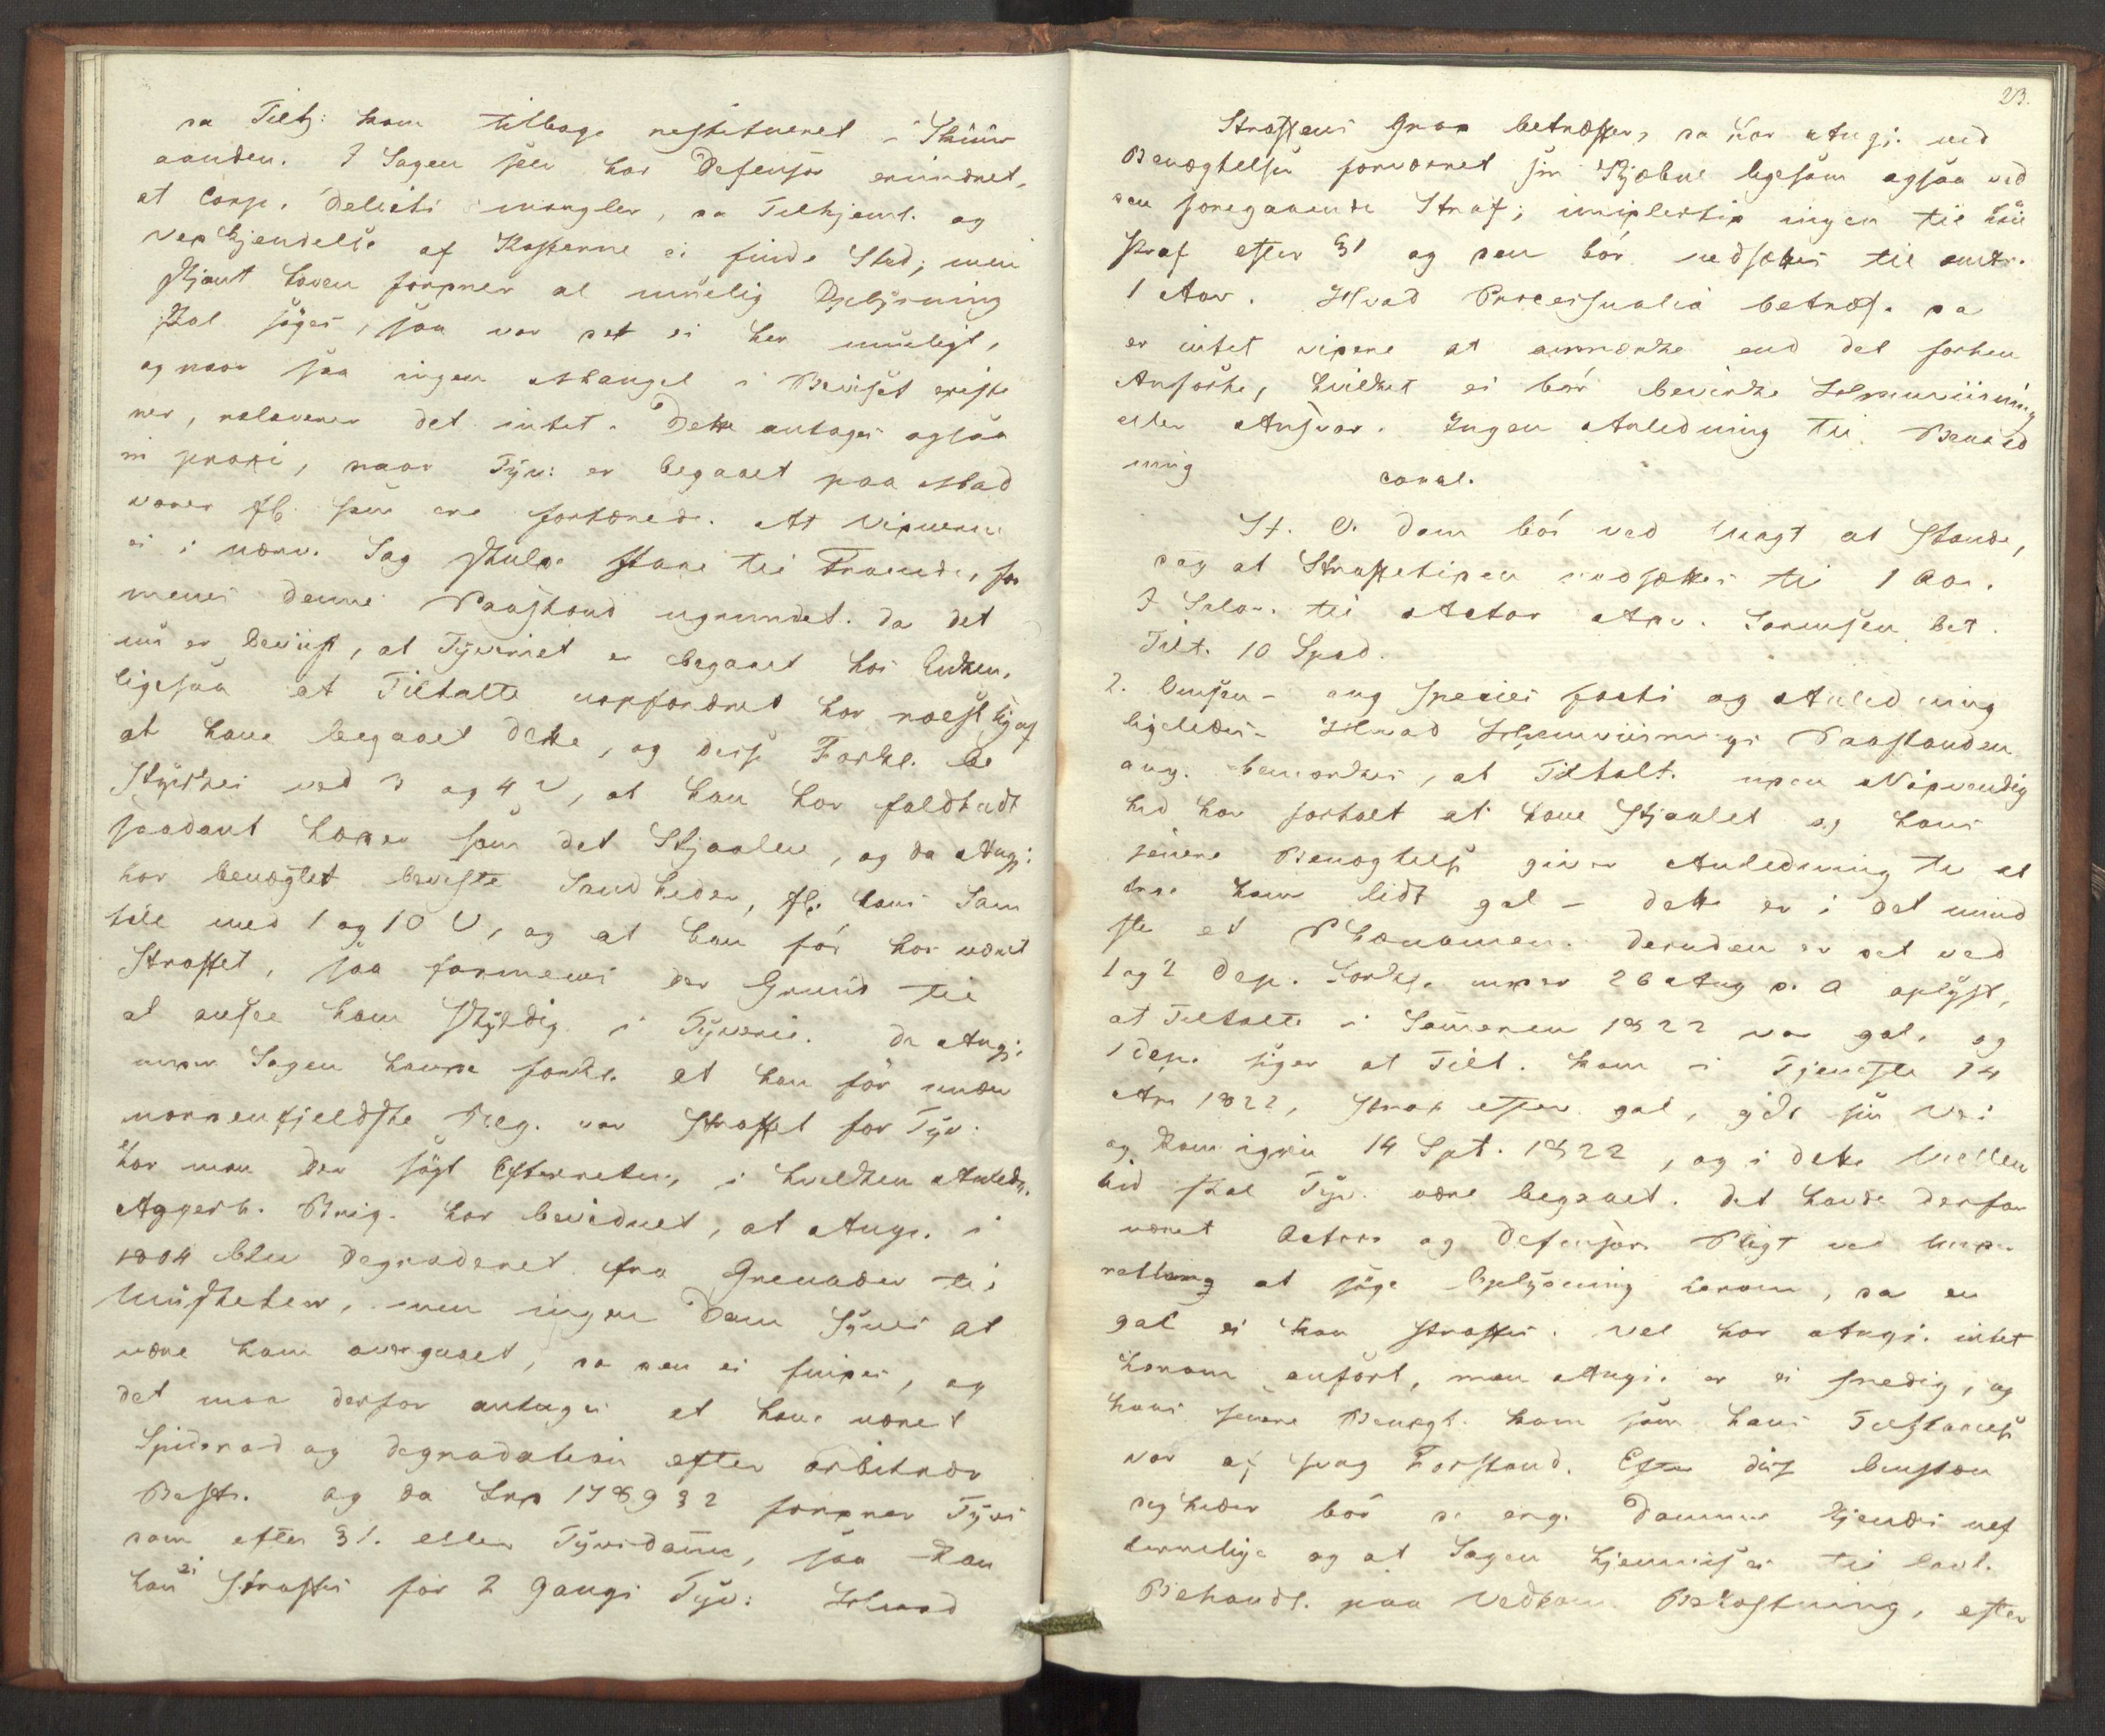 da Tilt: kom tilbage restitueret i Skuur
aanden. I Sagen her har Defensor erindret,
at Corp. Delicti mangler, da Tilhjeml. og
Vedkjendelse af Kosterne ei finde Sted; men
skjønt Loven fordrer al muelig Oplysning
skal søges, saa var det ei her mueligt,
og naar saa ingen Mangel i Beviset existe
rer, releverer det intet. Dette antages ogsaa
in praxi, naar Tyv: er begaaet paa Mad
varer fE. som ere fortærede. At Vidnerne
ei i nærv. Sag skulde staae til Troende, for
menes denne Paastand ugrundet. da det
nu er beviist, at Tyveriet er begaaet hos Enken,
ligesaa at Tiltalte uopfordret har røest sig af
at have begaaet dette, og disse Forkl. be
styrkes ved 3 og 4 V, at han har faldbudt
saadant Læder som det Stjaalne, og da Ang:
har benægtet beviste Sandheder, fE. hans Sam
tale med 1 og 10 V, og at han før har været
Straffet, saa formenes der Grund til
at ansee ham skyldig i Tyverie. Da Ang:
under Sagen havde forkl. at han før under
nordenfjeldske Reg. var Straffet for Tyv:
har man der søgt Efterretn, i hvilken Anledn.
Aggersh. Brig. har bevidnet, at Angj. i
1804 blev degraderet fra Grenader til
Musketeer, men ingen Dom synes at
være ham overgaaet, da den ei findes, og
det maa derfor antages at have været
Spidsrod og degradation efter arbitrær
Best. og da Frd 1789 § 2 fordrer Tyvs
dom efter § 1. eller Tyvsdømme, saa kan
han ei Straffes for 2 Gangs Tyv: Hvad
23.
Straffens Grad betræffer, da har Angj. ved
Benægtelsen forværret sin Skjæbne ligesom ogsaa ved
den foregaaende Straf; imidlertid ingen til
Straf efter § 1 og den bør nedsættes til omtr.
1 Aar. Hvad Processualia betræf. da
er intet videre at anmærke end det forhen
Anførte, hvilket ei bør bevirke Hjemviisning
eller Ansvar. Ingen Anledning til Beneed
ning concl.
St. O. Dom bør ved Magt at Stande,
dog at Straffetiden nedsættes til 1 Aar.
I Salar. til Actor Adv. Sørensen bet.
Tilt. 10 Spd.
2. Omsen - ang Species facti og Anledning
ligeledes - Hvad Hjemviisnings Paastanden
ang. bemærkes, at Tiltalt. uden Nødvendig
hed har fortalt at have Stjaalet og hans
senere Benægtelse giver Anledning til at
troe ham lidt gal - dette er i det mind
ste et Phænomen. desuden er det ved
1 og 2 Dep. Forkl. under 26 Aug d. A oplyst,
at Tiltalte i Sommeren 1822 var gal, og
1 dep. siger at Tilt. kom i Tjeneste 14
Apr 1822, Strax efter gal, gik sin Vei
og kom igien 14 Spt. 1822, og i dette Mellem
tid skal Tyv. være begaaet. Det havde derfor
været Actors og Defensors Pligt ved Under
retten at søge Oplysning herom, da en
gal ei kan straffes. Vel har Angj. intet
herom anført, men Angj. er ei snedig, og
hans senere Benægt. kom som hans Tilstaaelse
var af svag Forstand. Efter disse Omstæn
digheder bør d. eng. Domme kjendes uef
terrettelige og at Sagen hjemvises til lovl.
Behandl. paa Vedkom. Bekostning, efter